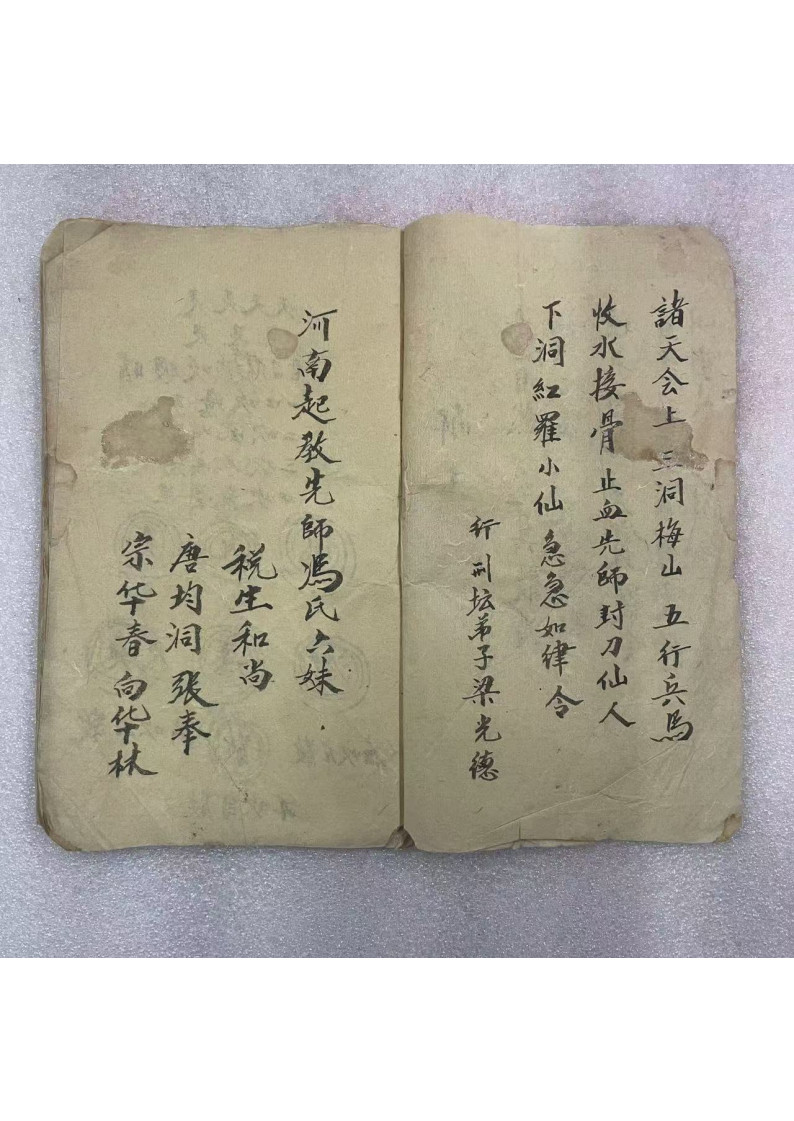 諸天会上 三洞梅山 五行兵馬
收水接骨 止血先師 封刀仙人
下洞紅羅小仙 急急如律令
行刑坛弟子梁光德
河南起教先師馮氏六妹
税生和尚
唐均洞 張奉
宗华春 向华林